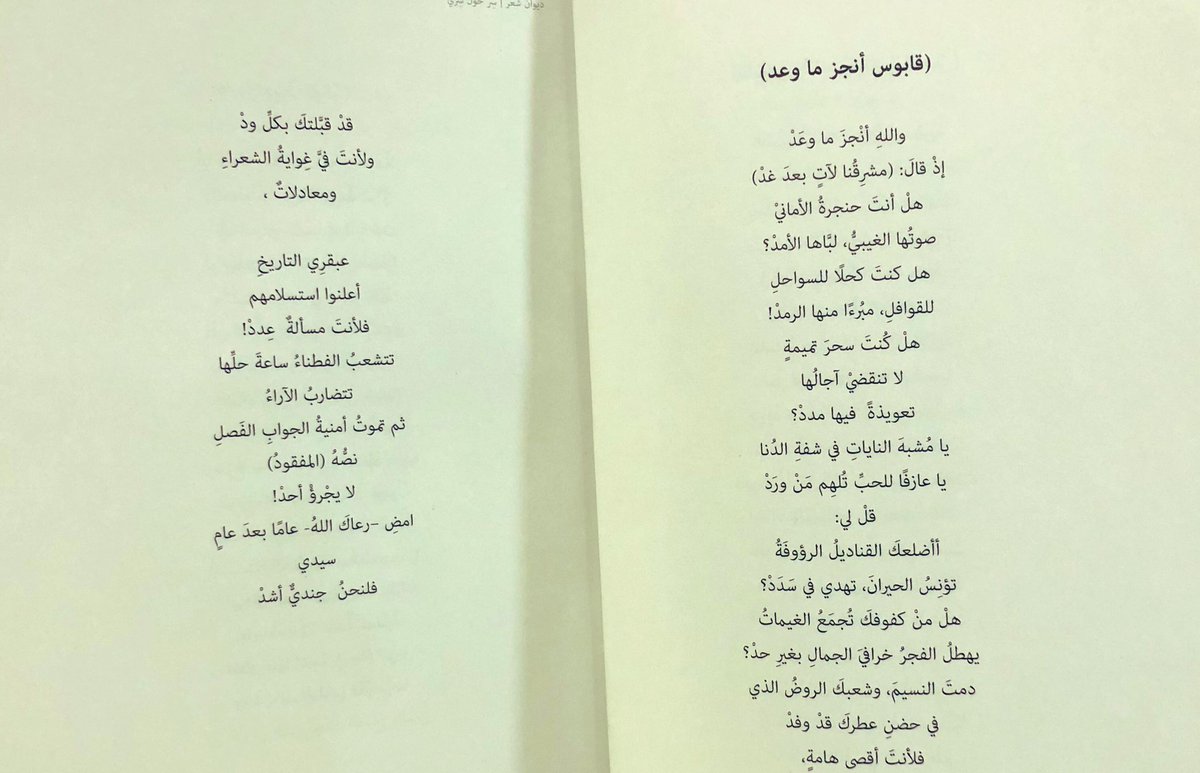 (قابوس أنجز ما وعد)
واللهِ أنْجزَ ما وعَدْ
إذْ قالَ: (مشرِقُنا لآتٍ بعدَ غدْ)
هلْ أنتَ حنجرةُ الأمانيْ
صوتُها الغيبيُّ، لبَّاها الأمدْ؟
هل كنتَ كحلًا للسواحلِ
للقوافلِ، مبُرءًا منها الرمدْ!
هلْ كُنتَ سحرَ تميمةٍ
لا تنقضيْ آجالُها
تعويذةً فيها مددْ؟
يا مُشبهَ الناياتِ في شفةِ الدُنا
يا عازفًا للحبِّ تُلهِم مَنْ ورَدْ
قلْ لي:
أأضلعكَ القناديلُ الرؤوفَةُ
تؤنِسُ الحيرانَ، تهدي في سَدَدْ؟
هلْ منْ كفوفكَ تُجمَعُ الغيماتُ
يهطلُ الفجرُ خرافيَ الجمالِ بغيرِ حدْ؟
دمتَ النسيمَ، وشعبكَ الروضُ الذي
في حضنِ عطركَ قدْ وفدْ
فلأنتَ أقصى هامةٍ،
ديوان شعر |
قدْ قبَّلتكَ بكلِّ ودْ
ولأنتَ فيَّ غِوايةُ الشعراءِ
ومعادلاتٌ ،
عبقرِي التاريخِ
أعلنوا استسلامهم
فلأنتَ مسألةٌ عِددْ!
تتشعبُ الفطناءُ ساعةَ حلِّها
تتضاربُ الآراءُ
ثم تموتُ أمنيةُ الجوابِ الفَصلِ
نصُّهُ (المفقودُ)
لا يجْرؤْ أحدْ!
امضِ –رعاكَ اللهُ- عامًا بعدَ عامٍ
سيدي
فلنحنُ جنديٌّ أشدْ